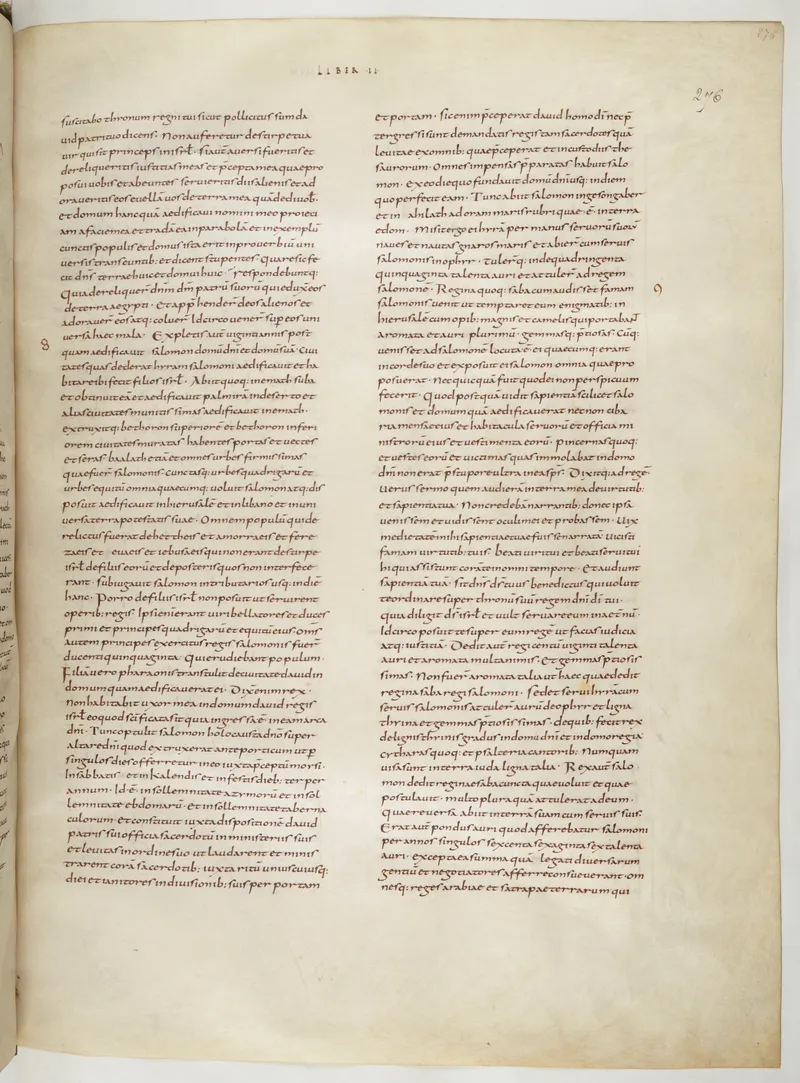 LIBER II
276
suscitabo thronum regni tui sicut pollicitus sum da
uid patri tuo dicens · Non auferetur de stirpe tua
uir qui sit princeps in isrl · si aut auersi fueritis et
dereliqueritis iustitias meas et pcepta mea quae pro
posui uobis et abeuntes seruieritis diis alienis et ad
oraueritis eos euellā uos de terra mea quā dedi uob·
et domum hanc quā aedificaui nomini meo proiciā
a facie mea et tradā eā in parabolā et in exemplū
cunctis populis et domus ista erit in prouerbiū uni
uersis transeuntib; et dicent stupentes · Quare sic fe
cit dn̄s terrae huic et domui huic · respondebuntq;
Quia dereliquer̄ dn̄m dm̄ patrū suorū qui eduxit eos
de terra aegypti · et appr̄henderт̄ deos alienos et
adorauer̄ eos atq; coluer̄ · Idcirco uener̄ sup eos uni
uersa haec mala · Expletis aut uiginti annis post
8
quam aedificauit salomon domū dn̄i et domū suā · Ciui
tates quas dederat hyram salomoni aedificauit et ha
bitare ibi fecit filios isrl · Abiit quoq; in emath suba
et obtinuit eā et aedificauit palmirā in deserto et
alias ciuitates munitissimas aedificauit in emath ·
extruxitq; bethoron superiorē et bethoron inferi
orem ciuitates muratas habentes portas et uectes
et seras · baalath etiā et omnes urbes firmissimas
quae fuer̄ salomonis · cunctasq; urbes quadrigarū et
urbes equitū omnia quaecumq; uoluit salomon atq; dis
posuit aedificauit in hierusalē et in libano et in uni
uersa terra potestatis suae · Omnem populū qui de
relictus fuerat de hetheis et amorreis et fere
zeis et eueis et iebuseis qui non erant de stirpe
isrl de filiis eorū et de posteris quos non interfece
rant · subiugauit salomon in tributarios usq; in diē
hanc · Porro de filiis isrl non posuit ut seruirent
operib; regis · Ipsi enim erant uiri bellatores et duces
primi et principes quadrigarū et equitū eius · Oms
autem principes exercitus regis salomonis fuer̄
ducenti quinquaginta · Qui erudiebant populum ·
Filiā uero pharaonis transtulit de ciuitate dauid in
domum quam aedificauerat ei · Dixit enim rex ·
Non habitabit uxor mea in domum dauid regis
isrl eo quod scificata sit quia ingressa ē in ea m arca
dn̄i · Tunc optulit salomon holocausta dn̄o super
altare dn̄i quod extruxerat ante porticum ut p
singulos dies offerretur in eo iuxta pceptū mosi ·
In sabbatis · et in kalendis et in festis dieb; ter per
annum · Id · ē · in sollemnitate azymorū et in sol
lemnitate ebdomarū · et in sollemnitate taberna
culorum · et constituit iuxta dispositionē dauid
patris sui officia sacerdotū in ministeriis suis
et leuitas in ordine suo ut laudarent et minis
trarent corā sacerdotib; iuxta ritū uniuscuiusq;
diei et ianitores in diuisionib; suis per portam
et portam · sic enim pceperat dauid homo dī nec p
tergressi sunt de mandatis regis tam sacerdotes quā
leuitae ex omnib; quae pceperat et in custodiis the
saurorum · Omnes impensas pparatas habuit salo
mon · ex eo die quo fundauit domū dn̄i usq; in diem
quo perfecit eam · Tunc abiit salomon in gesongaber
et in ahilath ad oram maris rubri quae · ē · in terra
edom · Misit ergo ei hirā per manus seruorū suorū
naues et nautas gnaros maris et abier̄ cum seruis
salomonis in ophyr · tuler̄q; inde quadringenta
quinquaginta talenta auri et attuler̄ ad regem
salomonē · Regina quoq; saba cum audisset famam
9
salomonis uenit ut temptaret eum enigmatib; in
hierusalē cum opib; magnis et camelis qui portabant
aromata et auri plurimū · gemmasq; ptiosas · Cūq;
uenisset ad salomonē locuta ē ei quaecumq; erant
in corde suo et exposuit ei salomon omnia quae pro
posuerat · Nec quicquā fuit quod ei non perspicuum
fecerit · Quod postquā uidit sapientiā scilicet salo
monis et domum quā aedificauerat necnon ciba
ria mensae eius et habitacula seruorū et officia mi
nistrorū eius et uestimenta eorū · pincernas quoq;
et uestes eorū et uictimas quas immolabat in domo
dn̄i non erat p stupore ultra in ea sp̄s · Dixitq; ad regē
Uerus sermo quem audierā in terra mea de uirtutib;
et sapientia tua · Non credebā narrantib; donec ipsa
uenissem et uidissent oculi mei et probassem · Uix
medietatem mihi sapientiae tuae fuisse narratā · Uicisti
famam uirtutib; tuis · beati uiri tui et beati serui tui
hi qui assistunt corā te in omni tempore · et audiunt
sapientiā tuā · sit dn̄s ds̄ tuus benedictus qui uoluit
te ordinare super thronū suū regem dn̄i dī tui ·
quia diligit ds̄ isrl et uult seruare eum in aetnū ·
Idcirco posuit te super eum regē ut facias iudicia
atq; iustitiā · Dedit aut regi centū uiginti talenta
auri et aromata multa nimis · et gemmas ptiosis
simas · Non fuer̄ aromata talia ut haec quae dedit
regina saba regi salomoni · sed et serui hirā cum
seruis salomonis attuler̄ aurū de ophir et ligna
thyina et gemmas ptiosissimas · de quib; fecit rex
de lignis thyinis gradus in domū dn̄i et in domo regia
cytharas quoq; et psalteria cantorib; Numquam
uisa sunt in terra iuda ligna talia · Rex aut salo
mon dedit reginae saba cuncta quae uoluit et quae
postulauit · multo plura quā attulerat ad eum ·
Quae reuersa abiit in terrā suam cum seruis suis ·
Erat aut pondus auri quod afferebatur salomoni
per annos singulos sexcenta sexaginta sex talenta
auri · excepta ea summa quā legati diuersarum
gentiū et negotiatores afferre consueuerant · om
nesq; reges arabiae et satrapae terrarum qui